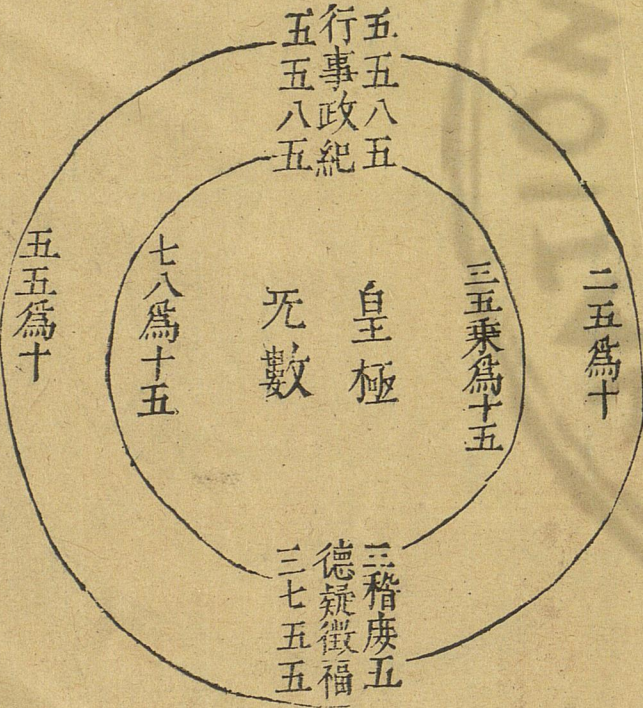 五五八五
行事政紀
五五八五
二五爲十
三五乘爲十五
皇極
无數
七八爲十五
五五爲十
三稽庶五
德疑徵福
三七五五